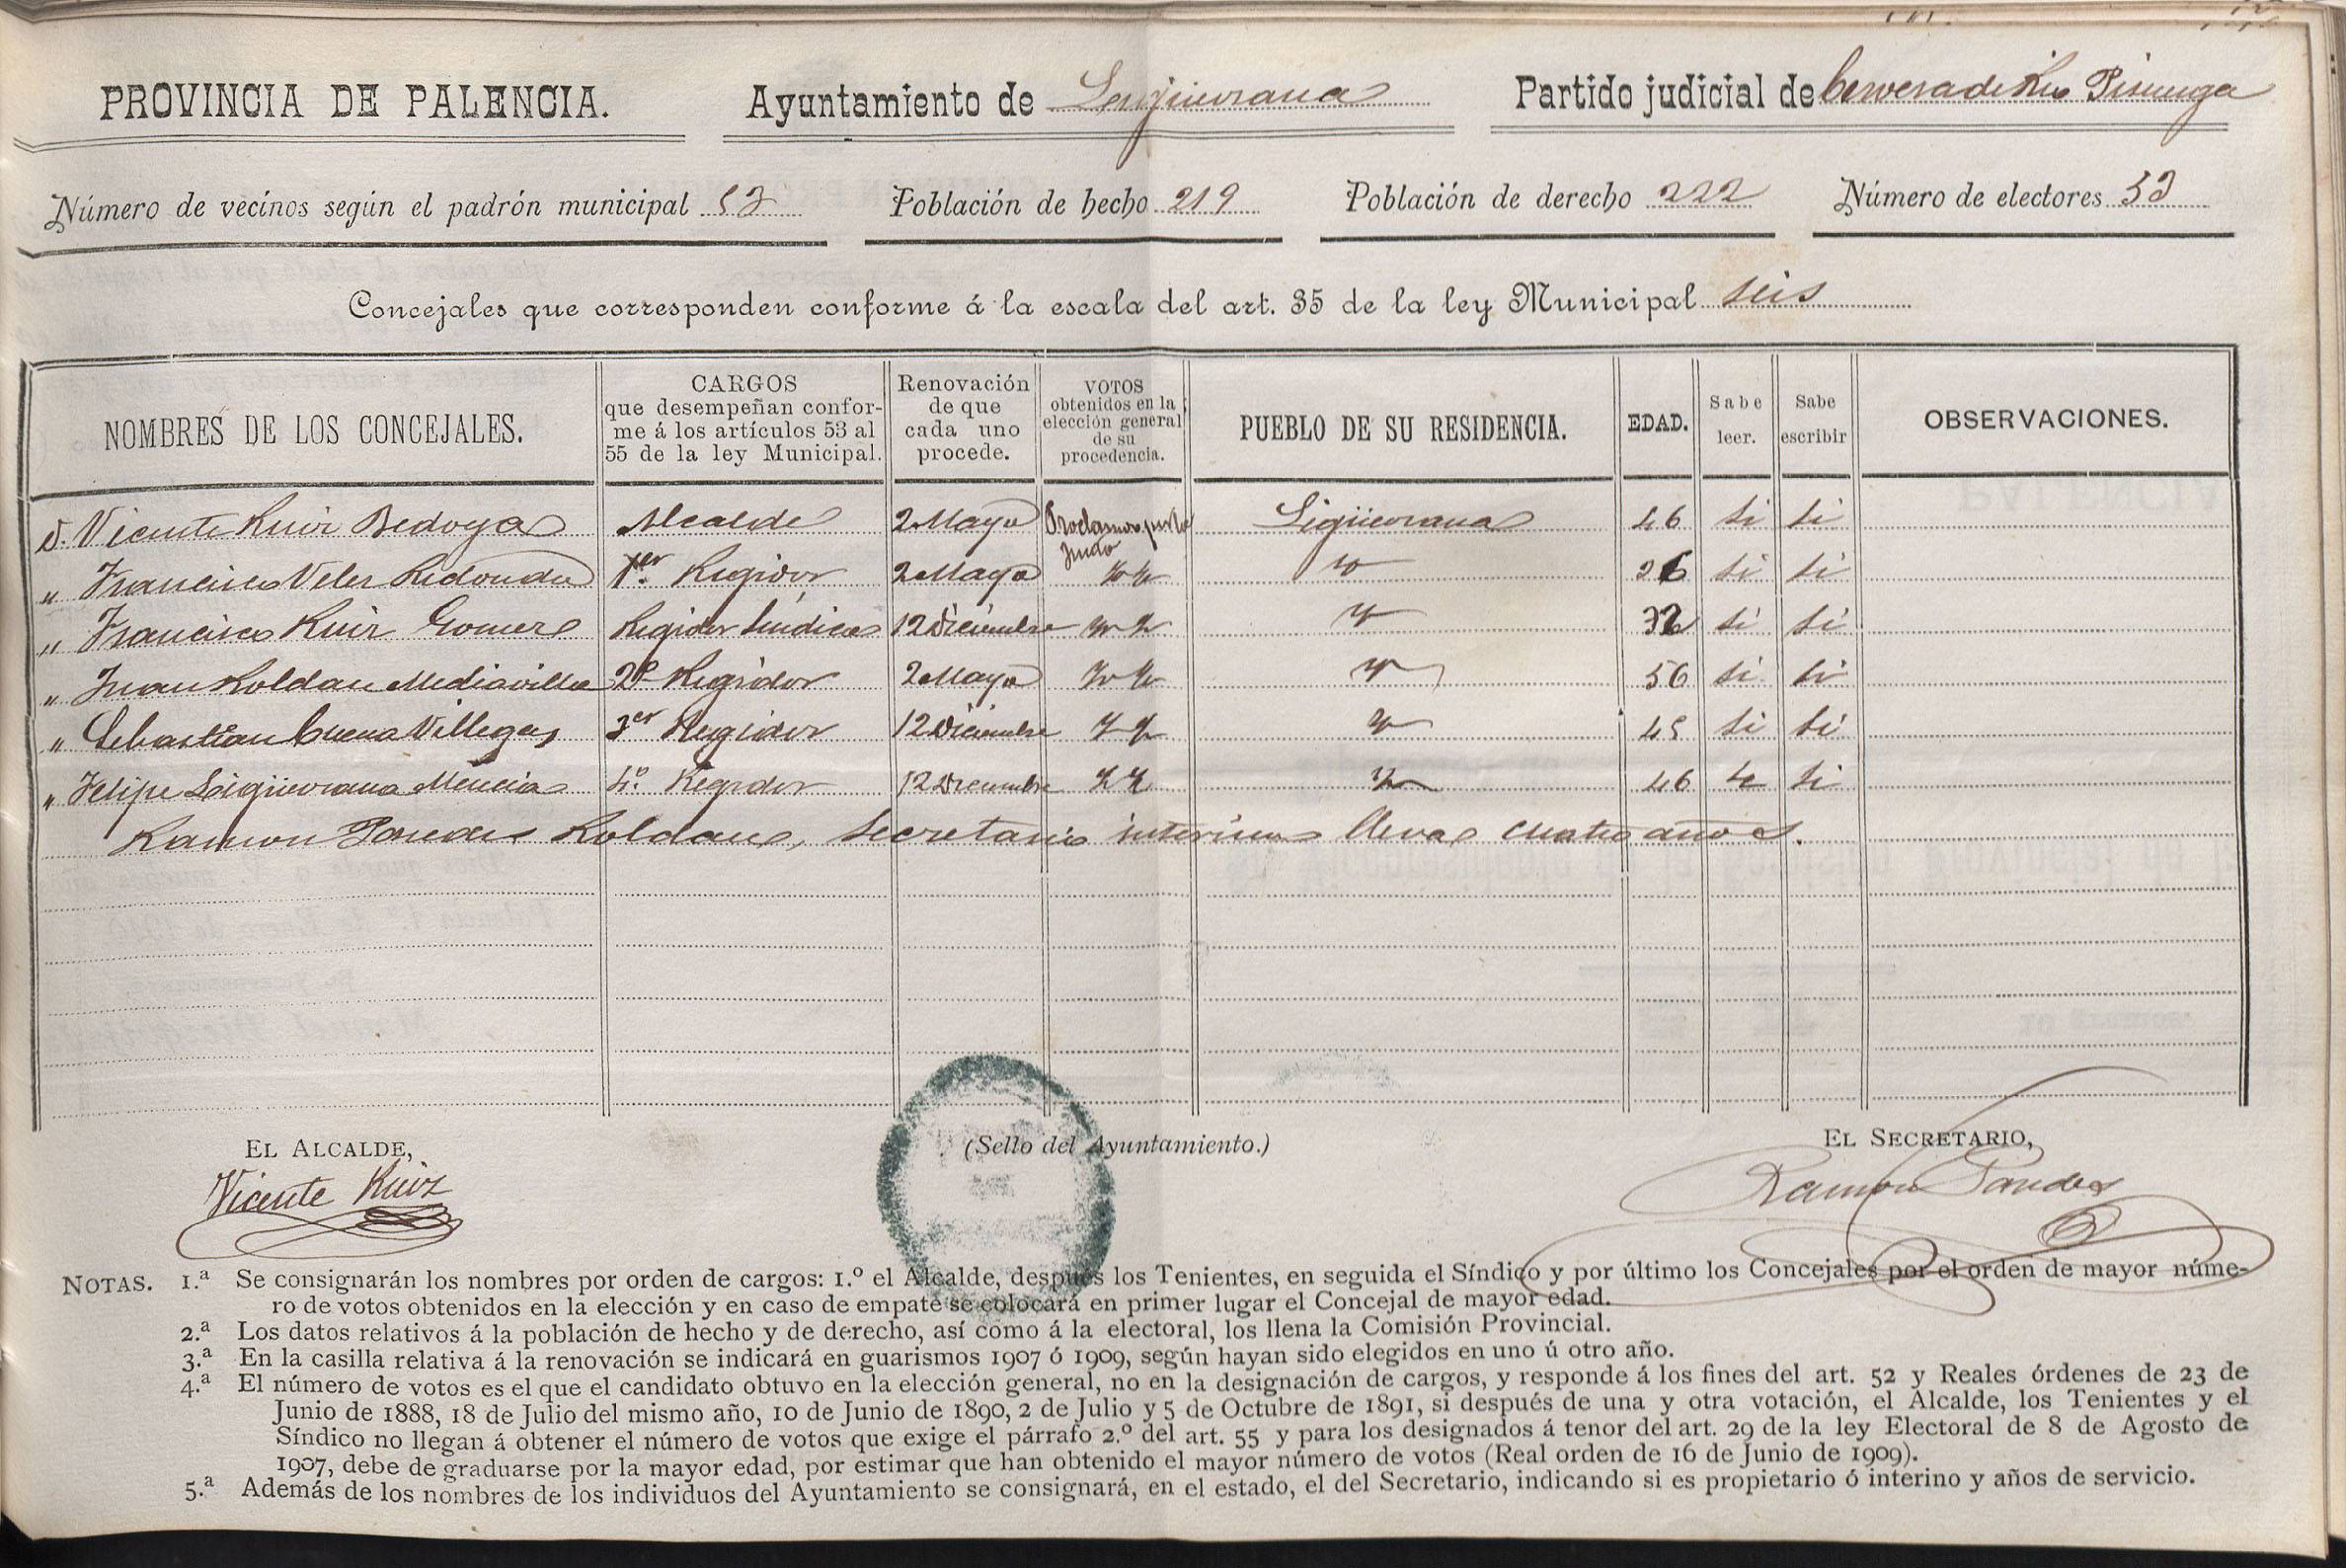 PROVINCIA DE PALENCIA. Ayuntamiento de Ligüerzana Partido judicial de Cervera de Rio Pisuerga
Número de vecinos según el padrón municipal 53 Población de hecho 219 Población de derecho 222 Número de electores 53
Concejales que corresponden conforme á la escala del art. 35 de la ley Municipal seis
NOMBRES DE LOS CONCEJALES. CARGOS que desempeñan confor- me á los artículos 53 al 55 de la ley Municipal. Renovación de que cada uno procede. VOTOS obtenidos en la elección general de su procedencia. PUEBLO DE SU RESIDENCIA. EDAD. Sabe leer. Sabe escribir OBSERVACIONES.
D. Vicente Ruiz Bedoya Alcalde 2 Mayo Ligüerzana 46 si si
" Francisco Velez Redondo 1er Regidor 2 Mayo 26 si si
" Francisco Ruiz Gomez Regidor Sindico 12 Diciembre 32 si si
" Juan Roldan Mediavilla 2º Regidor 2 Mayo 56 si si
" Sebastian Cuena Villegas 3er Regidor 12 Diciembre 45 si si
" Felipe Ligüerzana Mencia 4º Regidor 12 Diciembre 46 si si
Ramon Paredes Roldan, Secretario interino lleva cuatro años.
EL ALCALDE, (Sello del Ayuntamiento.) EL SECRETARIO,
Vicente Ruiz Ramon Paredes
NOTAS. 1.ª Se consignarán los nombres por orden de cargos: 1.º el Alcalde, después los Tenientes, en seguida el Síndico y por último los Concejales por el orden de mayor núme-
ro de votos obtenidos en la elección y en caso de empate se colocará en primer lugar el Concejal de mayor edad.
2.ª Los datos relativos á la población de hecho y de derecho, así como á la electoral, los llena la Comisión Provincial.
3.ª En la casilla relativa á la renovación se indicará en guarismos 1907 ó 1909, según hayan sido elegidos en uno ú otro año.
4.ª El número de votos es el que el candidato obtuvo en la elección general, no en la designación de cargos, y responde á los fines del art. 52 y Reales órdenes de 23 de
Junio de 1888, 18 de Julio del mismo año, 10 de Junio de 1890, 2 de Julio y 5 de Octubre de 1891, si después de una y otra votación, el Alcalde, los Tenientes y el
Síndico no llegan á obtener el número de votos que exige el párrafo 2.º del art. 55 y para los designados á tenor del art. 29 de la ley Electoral de 8 de Agosto de
1907, debe de graduarse por la mayor edad, por estimar que han obtenido el mayor número de votos (Real orden de 16 de Junio de 1909).
5.ª Además de los nombres de los individuos del Ayuntamiento se consignará, en el estado, el del Secretario, indicando si es propietario ó interino y años de servicio.